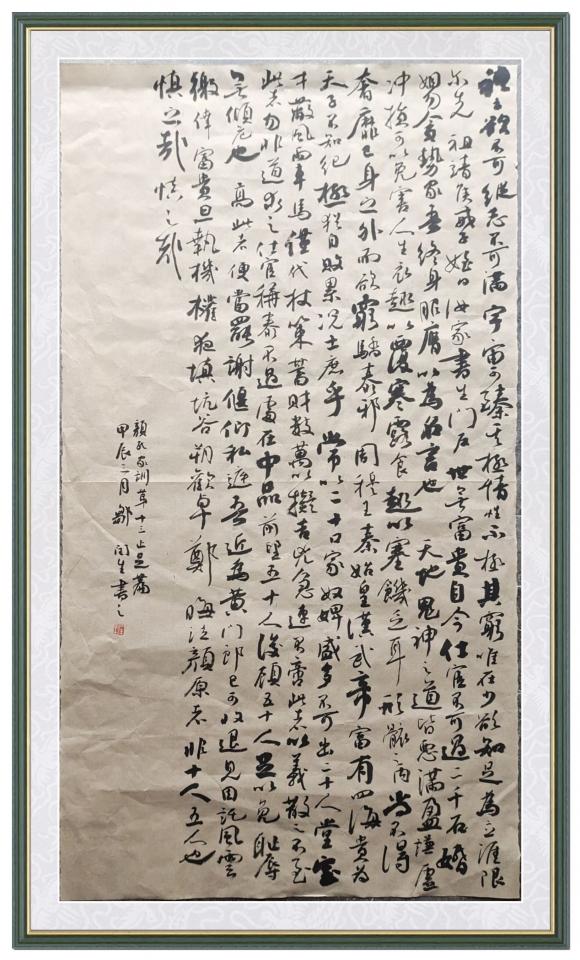 禮云欲不可縱志不可滿宇宙可臻其極情性不極其窮唯在少欲知足為立涯限
尔先祖靖侯戒子姪曰汝家書生門户世無富貴自今仕宦不可過二千石婚
姻勿貪勢家吾終身服膺以為名言也天地鬼神之道皆惡滿盈謙虛
冲損可以免害人生衣趣以覆寒露食趣以塞饑乏耳形骸之内尚不得
奢靡己身之外而欲窮驕泰邪周穆王秦始皇漢武帝富有四海貴為
天子不知紀極猶自敗累况士庶乎常以二十口家奴婢盛多不可出二十人堂室
才蔽風雨車馬僅代杖策蓄財數萬以擬吉凶急速不啻此者以義散之不至
此者勿非道求之仕宦稱泰不過處在中品前望五十人後顧五十人足以免耻辱
無傾危也高此者便當罷謝偃仰私庭吾近為黄門郎已可收退見因託風雲
徼倖富貴旦執機權夜填坑谷朔歡卓鄭晦泣顏原者非十人五人也
慎之哉慎之哉
顏氏家訓第十三止足篇
甲辰二月鄒閏生書之